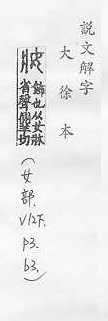 說文解字
大徐本
妝 飾也从女牀
省聲側羊切
(女部. V12下. P3. b3.)